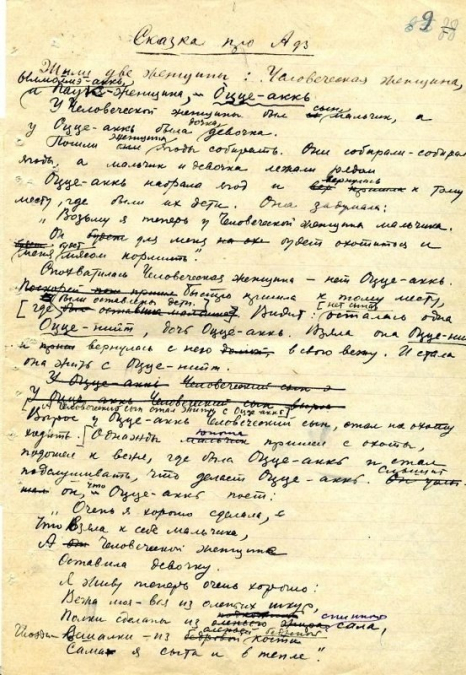 9
Сказка про Адз
Жили две женщины: Человеческая женщина,
а женщина, — Оцце-аккь.
У Человеческой женщины был сын мальчик, а
у Оцце-аккь была дочка девочка.
Пошли женщины ягоды собирать. Они собирали-собирали
ягоды, а мальчик и девочка лежали рядом
Оцце-аккь набрала ягод и вернулась к тому
месту, где были их дети. Она задумала:
"Возьму я теперь у Человеческой женщины мальчика.
Он для меня будет охотиться и
меня мясом кормить".
Спохватилась Человеческая женщина — нет Оцце-аккь.
быстро пришла к тому месту,
[где были оставлены дети. Видит: осталась одна
Оцце-нийт, дочь Оцце-аккь. Взяла она Оцце-нийт
и вернулась с нею в свою вежу. И стала
она жить с Оцце-нийт.
У Оцце-аккь Человеческий сын
У Оцце-аккь Человеческий сын вырос
[А Человеческий сын стал жить с Оцце-аккь]
Вырос у Оцце-аккь Человеческий сын, стал на охоту
ходить. Однажды юноша пришел с охоты,
подошел к веже, где была Оцце-аккь и стал
подслушивать, что делает Оцце-аккь. Слышит
он, что Оцце-аккь поет:
"Очень я хорошо сделала,
Что взяла к себе мальчика,
А Человеческой женщине
Оставила девочку.
Я живу теперь очень хорошо:
Вежа моя — вся из оленьих шкур,
Полки сделаны из оленьего спинного сала,
Вешалки — из кости
Сама я сыта и в тепле".